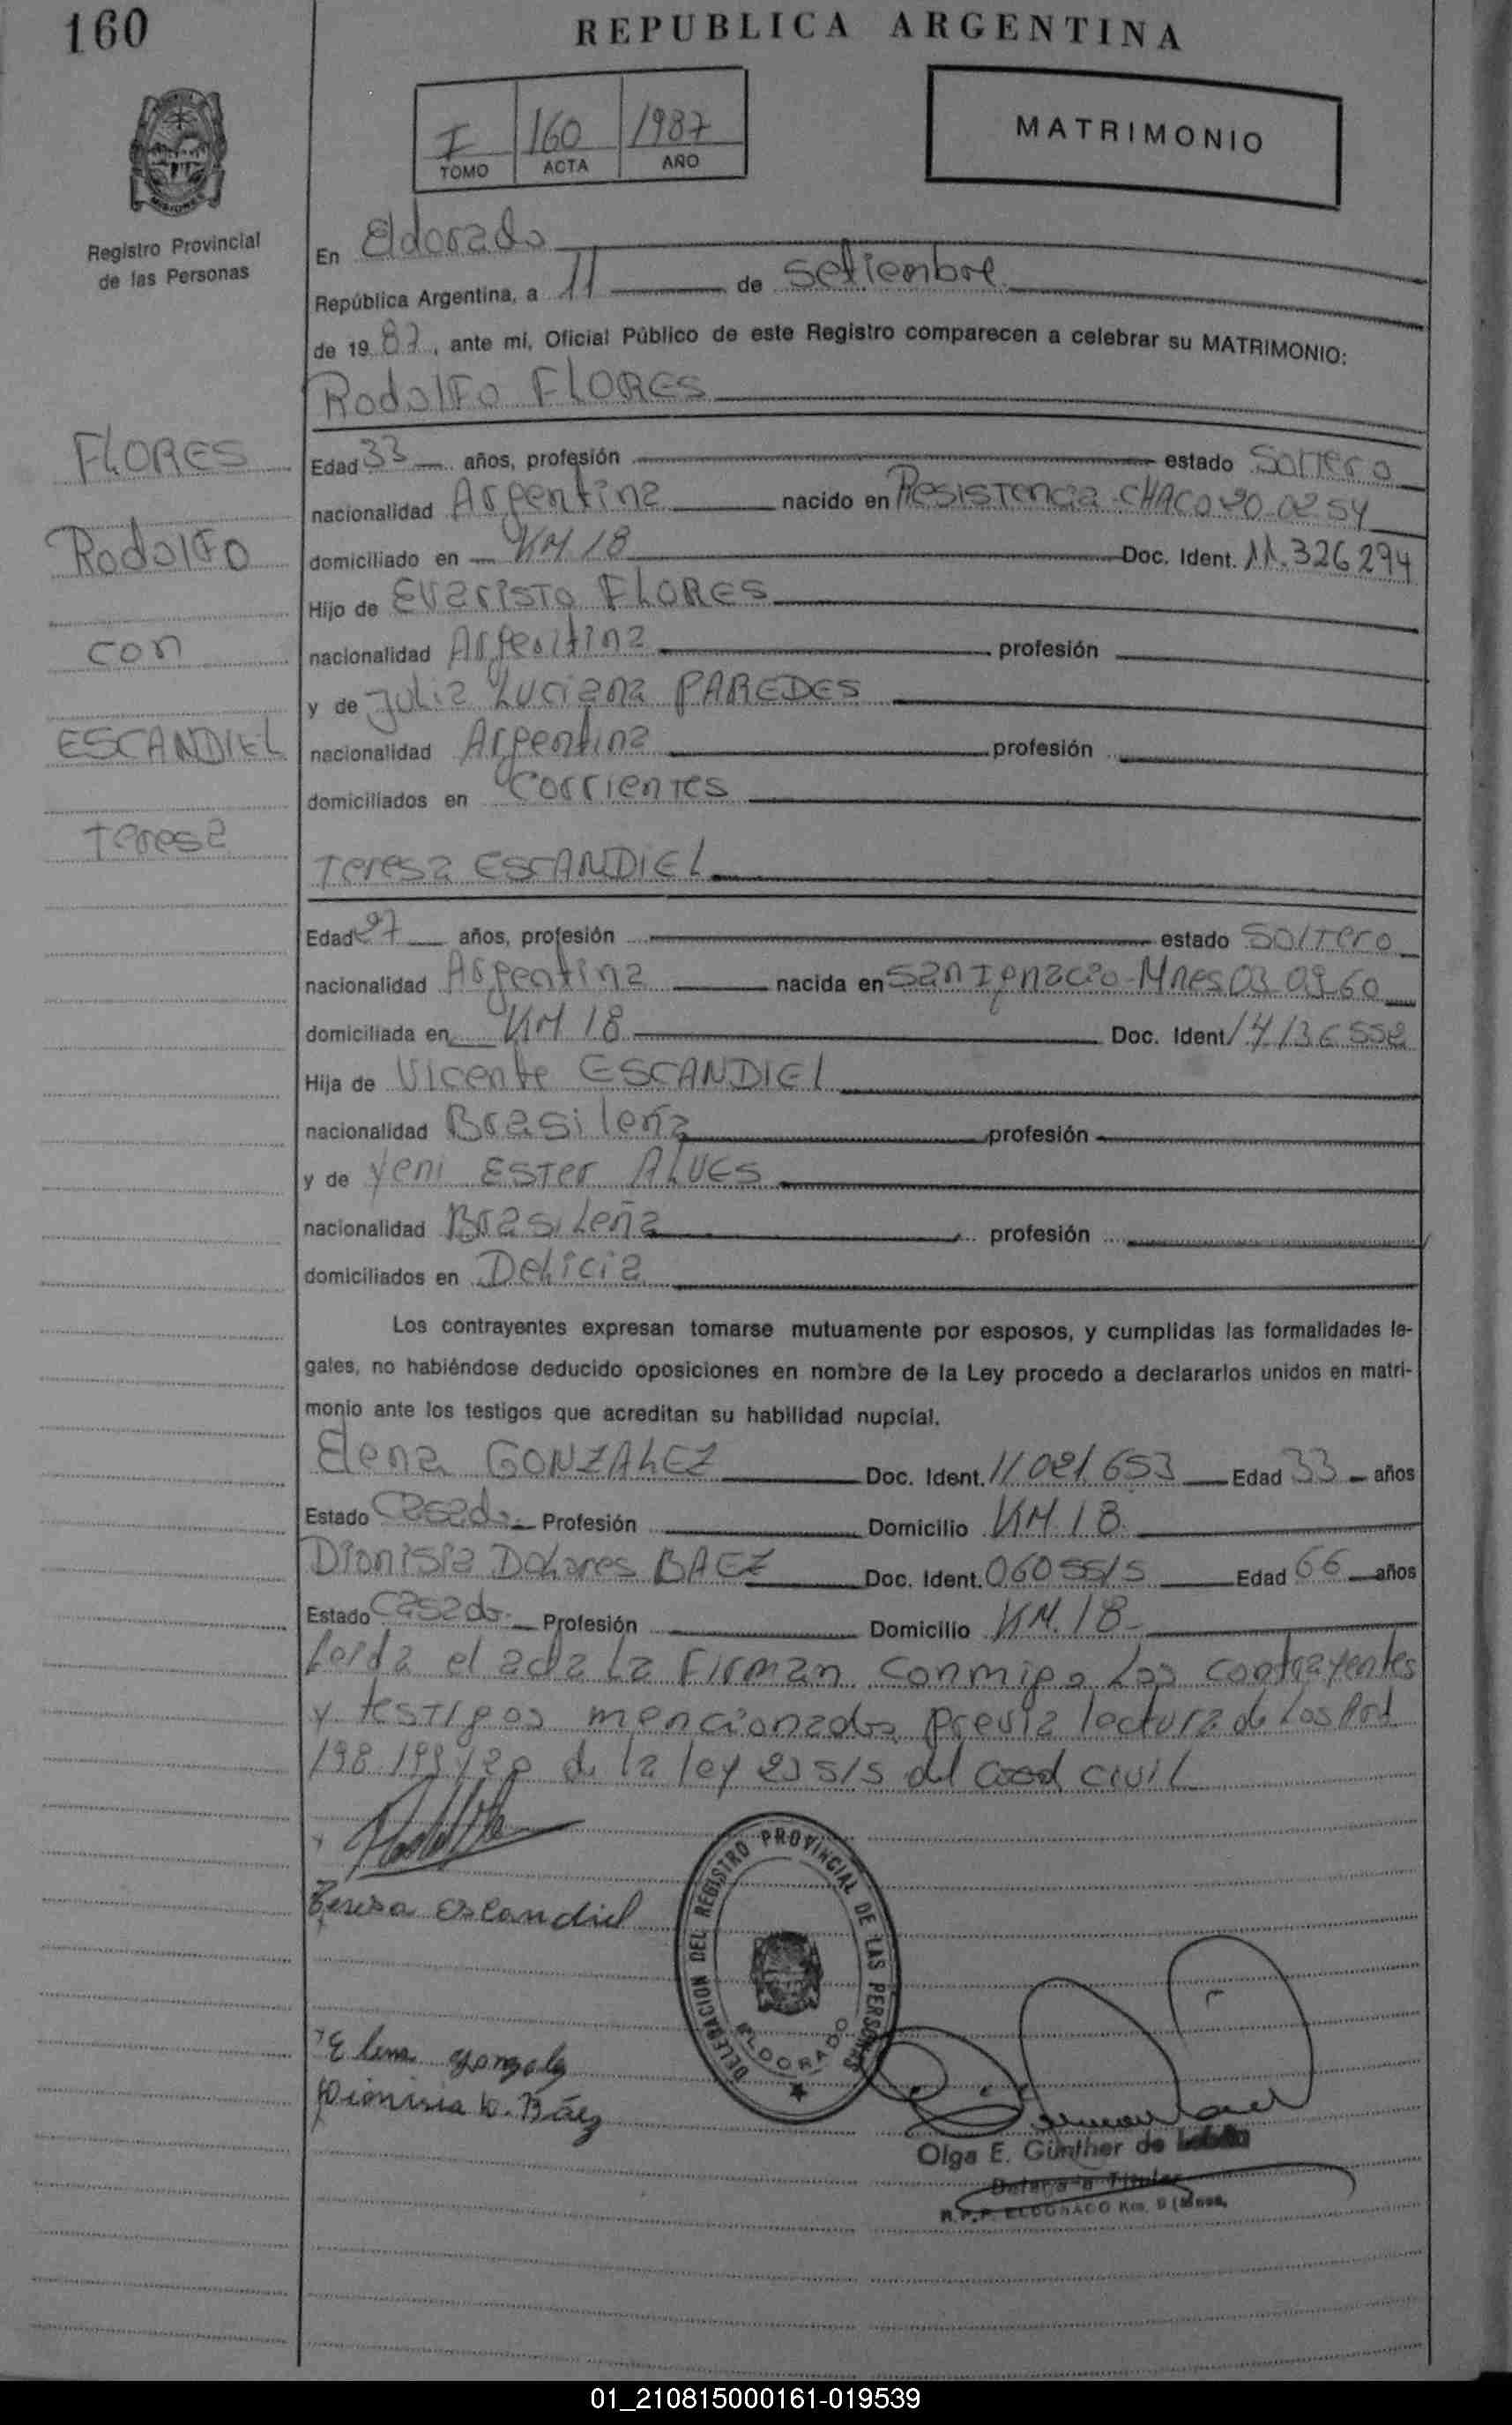 160
REPUBLICA ARGENTINA
I 160 1987
TOMO ACTA AÑO
MATRIMONIO
MISIONES
Registro Provincial
de las Personas
En Eldorado
República Argentina, a 11 de Setiembre
de 1987, ante mi, Oficial Público de este Registro comparecen a celebrar su MATRIMONIO:
Rodolfo FLORES
FLORES
Rodolfo
con
ESCANDIEL
Teresa
Edad 33 años, profesión estado Soltero
nacionalidad Argentina nacido en Resistencia-CHACO 20-02 54
domiciliado en KM 18 Doc. Ident. 11.326294
Hijo de Evaristo FLORES
nacionalidad Argentina profesión
y de Julia Luciana PAREDES
nacionalidad Argentina profesión
domiciliados en Corrientes
Teresa ESCANDIEL
Edad 27 años, profesión estado Soltero
nacionalidad Argentina nacida en San Ignacio-Mnes 03 09-60
domiciliada en KM 18 Doc. Ident 14136552
Hija de Vicente ESCANDIEL
nacionalidad Brasileña profesión
y de Yeni Ester ALVES
nacionalidad Brasileña profesión
domiciliados en Delicia
Los contrayentes expresan tomarse mutuamente por esposos, y cumplidas las formalidades le-
gales, no habiéndose deducido oposiciones en nombre de la Ley procedo a declararlos unidos en matri-
monio ante los testigos que acreditan su habilidad nupcial.
Elena GONZALEZ Doc. Ident. 11 021 653 Edad 33 años
Estado Casado Profesión Domicilio KM. 18
Dionisia Dolores BAEZ Doc. Ident. 0605515 Edad 66 años
Estado Casado Profesión Domicilio KM. 18
Leida el acta La Firman conmigo Los contrayentes
y testigos mencionados previa lectura de Los Art
198 199 y 20 de la ley 23 515 del Cood civil
Teresa Escandiel
DELEGACION DEL REGISTRO PROVINCIAL DE LAS PERSONAS
ELDORADO
Elena Gonzalez
Dionisia D. Báez
Olga E. Günther de
Delegada Titular
R.P.P. ELDORADO Km. 9 (Mnes.
01_210815000161-019539